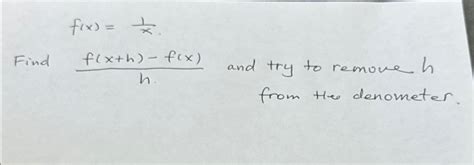 f(x) = 1/x.
Find f(x+h) - f(x) / h. and try to remove h
from the denometer.